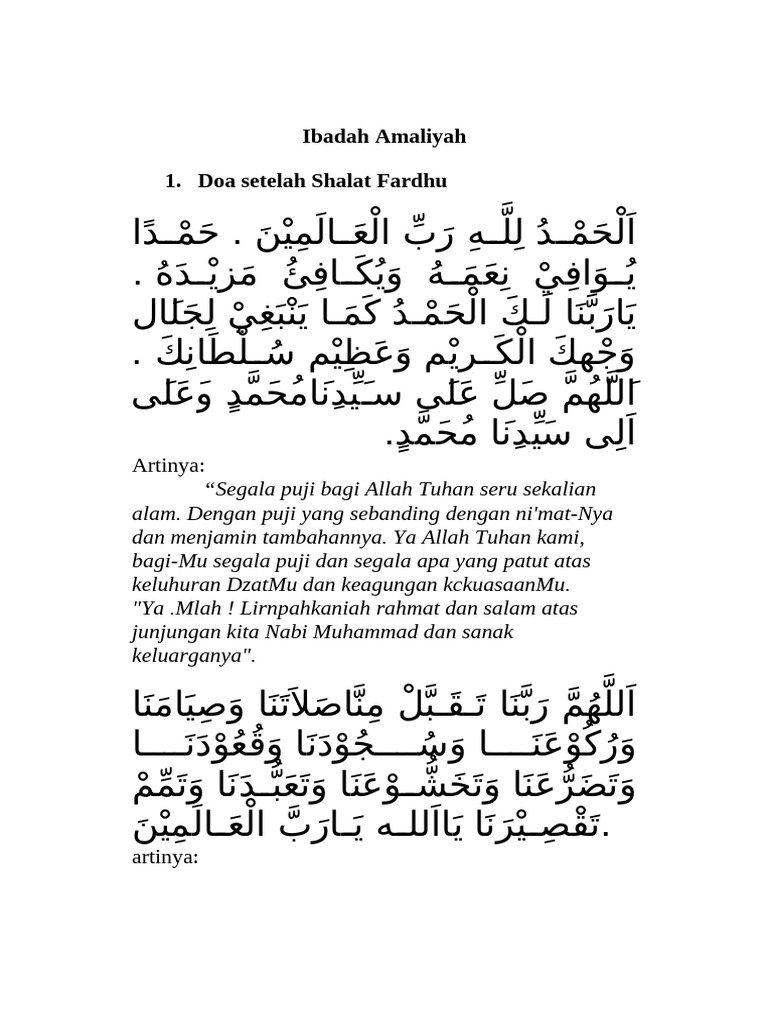 Ibadah Amaliyah
1. Doa setelah Shalat Fardhu
اَلْحَمْـدُ لِلَّـهِ رَبِّ الْعَـالَمِيْنَ . حَمْـدًا
يُـوَافِيْ نِعَمَـهُ وَيُكَـافِئُ مَزِيْـدَهُ .
يَارَبَّنَا لَـكَ الْحَمْـدُ كَمَـا يَنْبَغِيْ لِجَلَالِ
وَجْهِكَ الْكَـرِيْمِ وَعَظِيْمِ سُـلْطَانِكَ .
اَللَّهُمَّ صَلِّ عَلَى سـَيِّدِنَامُحَمَّدٍ وَعَلَى
اَلِى سَيِّدِنَا مُحَمَّدٍ.
Artinya:
“Segala puji bagi Allah Tuhan seru sekalian
alam. Dengan puji yang sebanding dengan ni'mat-Nya
dan menjamin tambahannya. Ya Allah Tuhan kami,
bagi-Mu segala puji dan segala apa yang patut atas
keluhuran DzatMu dan keagungan kckuasaanMu.
"Ya .Mlah ! Lirnpahkaniah rahmat dan salam atas
junjungan kita Nabi Muhammad dan sanak
keluarganya".
اَللَّهُمَّ رَبَّنَا تَـقَـبَّلْ مِنَّاصَلاَتَنَا وَصِيَامَنَا
وَرُكُوْعَنَـــا وَسُـــجُوْدَنَا وَقُعُوْدَنَـــا
وَتَضَرُّعَنَا وَتَخَشُّـوْعَنَا وَتَعَبُّـدَنَا وَتَمِّمْ
تَقْصِـيْرَنَا يَااَللـه يَـارَبَّ الْعَـالَمِيْنَ.
artinya: